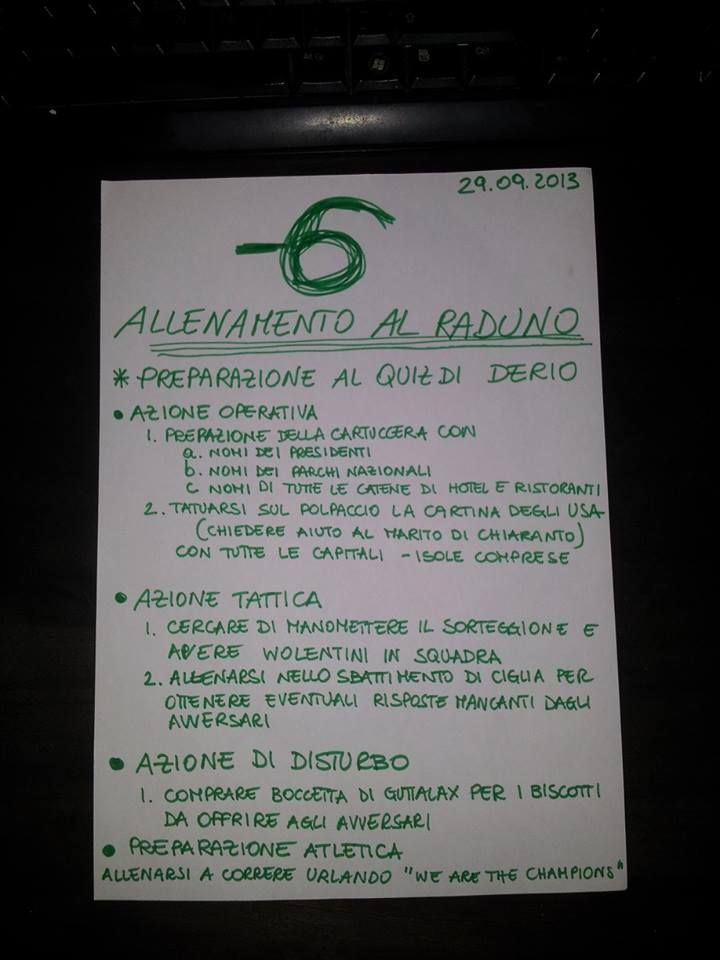 29.09.2013
-6
ALLENAMENTO AL RADUNO
* PREPARAZIONE AL QUIZ DI DERIO
• AZIONE OPERATIVA
1. PREPAZIONE DELLA CARTUCCERA CON
a. NOMI DEI PRESIDENTI
b. NOMI DEI PARCHI NAZIONALI
c NOMI DI TUTTE LE CATENE DI HOTEL E RISTORANTI
2. TATUARSI SUL POLPACCIO LA CARTINA DEGLI USA
(CHIEDERE AIUTO AL MARITO DI CHIARANTO)
CON TUTTE LE CAPITALI - ISOLE COMPRESE
• AZIONE TATTICA
1. CERCARE DI MANOMETTERE IL SORTEGGIONE E
AVERE WOLENTINI IN SQUADRA
2. ALLENARSI NELLO SBATTIMENTO DI CIGLIA PER
OTTENERE EVENTUALI RISPOSTE MANCANTI DAGLI
AVVERSARI
• AZIONE DI DISTURBO
1. COMPRARE BOCCETTA DI GUTTALAX PER I BISCOTTI
DA OFFRIRE AGLI AVVERSARI
• PREPARAZIONE ATLETICA
ALLENARSI A CORRERE URLANDO "WE ARE THE CHAMPIONS"